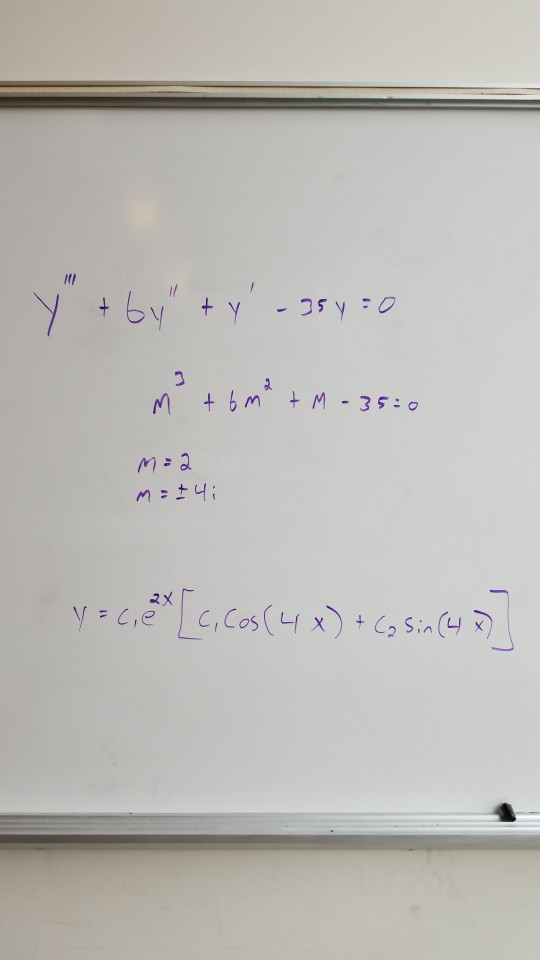 y''' + 6y'' + y' - 35y = 0
m³ + 6m² + m - 35 = 0
m = 2
m = ± 4i
y = c₁e²ˣ[c₁cos(4x) + c₂ sin(4x)]